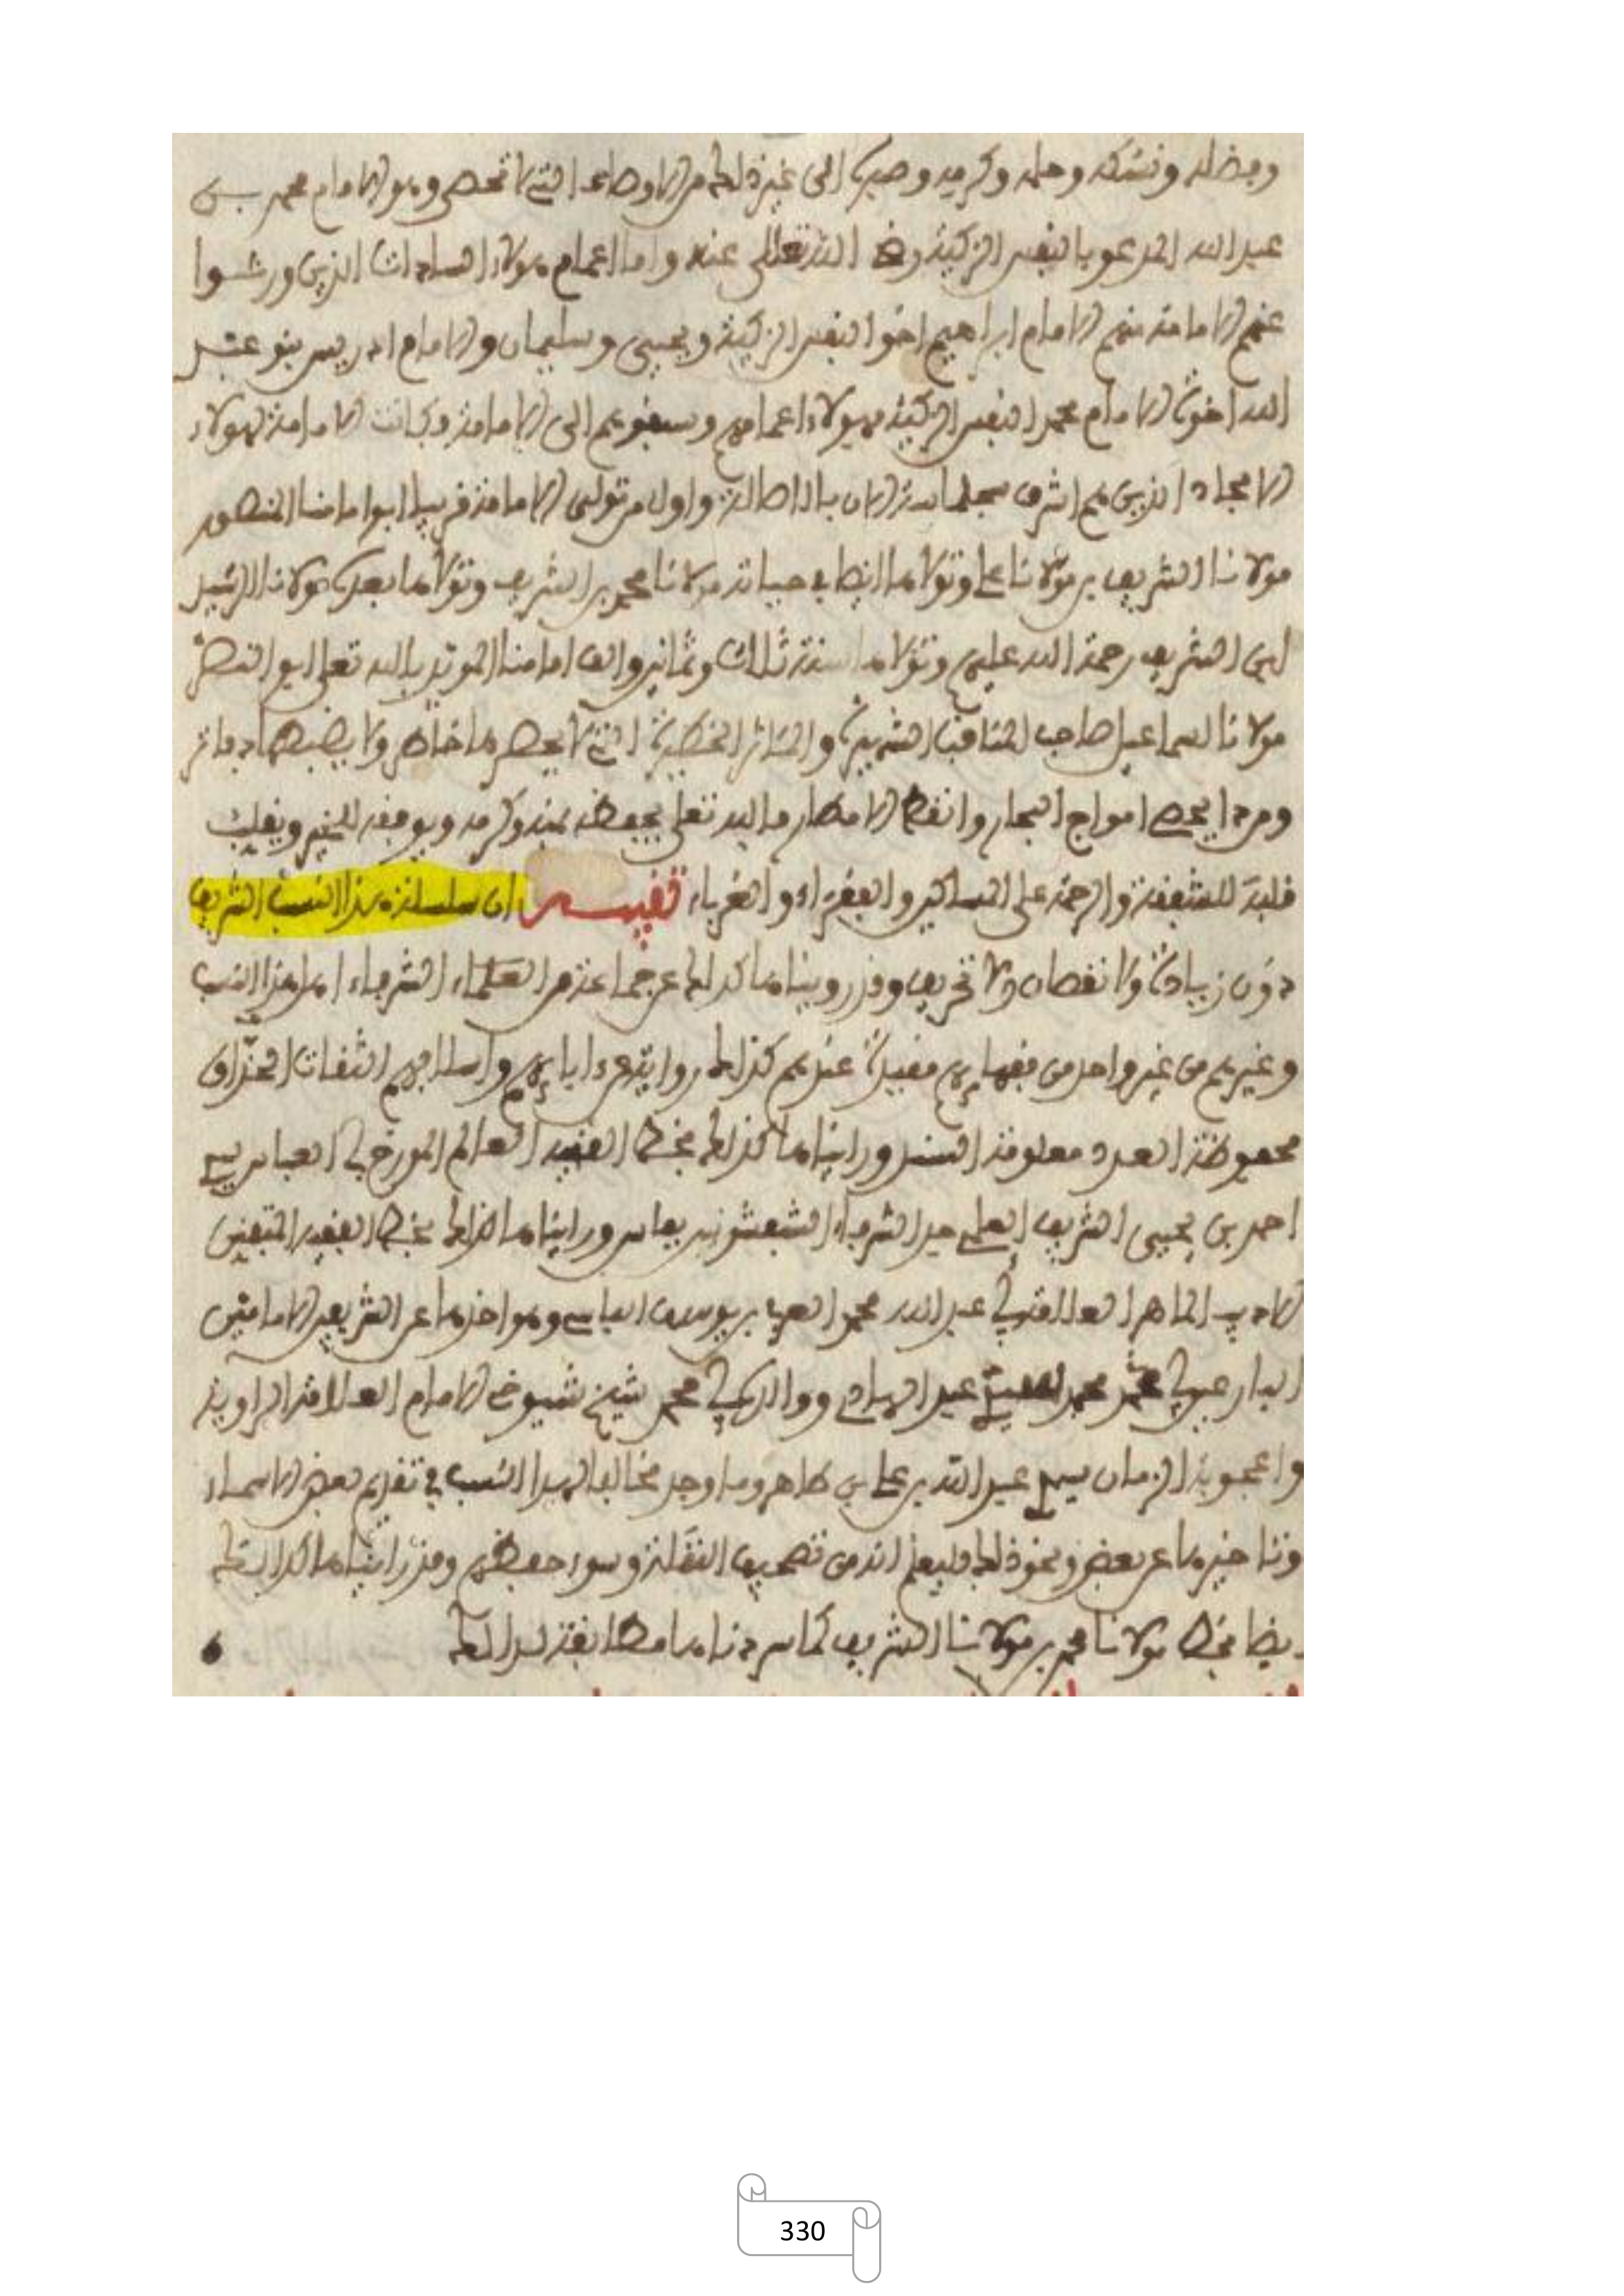 وفضله ونسكه وحلمه وكرمه وصبره الى غير ذلك من الاوصاف التي لا تحصى وهو الامام محمد بن
عبد الله المدعو بالنفس الزكية رضي الله تعالى عنه واما اعمام هولاء السادات الذين ورثوا
عنهم الامامة منهم الامام ابراهيم اخو النفس الزكية ويحيى وسليمان والامام ادريس بنو عبد
الله اخوة الامام محمد النفس الزكية فهولاء اعمامهم وسبقوهم الى الامامة وكانت الامامة لهولاء
الامجاد الذين هم اشرف سجلماسة الان بالاصالة واول من تولى الامامة قريبا ابو امامنا المنصور
مولانا الشريف بن مولانا علي وتولاها ايضا في حياته مولانا محمد بن الشريف وتولاها بعده مولانا الرشيد
ابن الشريف رحمة الله عليهم وتولاها سنة ثلاث وثمانين والف امامنا المويد بالله تعلى ابو النصر
مولانا اسماعيل صاحب المناقب الشهيرة والمئاثر الخطيرة التي لا يحصرها خاطر ولا يضبطها دفاتر
ومن ذا يحصي امواج البحار وانقط الامطار فالله تعلى يحفظه بمنه وكرمه ويوفقه للخير ويقلب
قلبه للشفقة والرحمة على المساكين والفقراء والغرباء تنبيه ان سلسلة هذا النسب الشريف
دون زيادة ولا نقصان ولا تحريف وقد رويناها كذلك عن جماعة من العلماء الشرفاء اهل هذا النسب
وغيرهم من غير واحد من فقهايهم مقيدة عندهم كذلك رواية عن ءابايهم واسلافهم الثقات الحذاق
محفوظة العدد معلومة السند ورايناها كذلك بخط الفقيه العالم المورخ ابي العباس سيدي
احمد بن يحيى الشريف العلمي من الشرفاء الشفشونيين بفاس ورايناها كذلك بخط الفقيه المتفنن
الاديب الماهر العلامة ابي عبد الله محمد العربي بن يوسف الفاسي وهو اخذها عن الشريفين الامامين
البارعين ابي محمد عبد الهادي ووالده ابي محمد شيخ شيوخ الامام العلامة الراوية
واعجوبة الزمان سيدي عبد الله بن علي بن طاهر وما وجد مخالفا لهذا النسب في تقديم بعض الاسماء
وتاخيرها عن بعض ونحو ذلك فليعلم انه من تصحيف النقلة وسوء حفظهم وقد رايناها كذلك
ايضا بخط مولانا محمد بن مولانا الشريف كما سردناها مطابقة لذلك
330